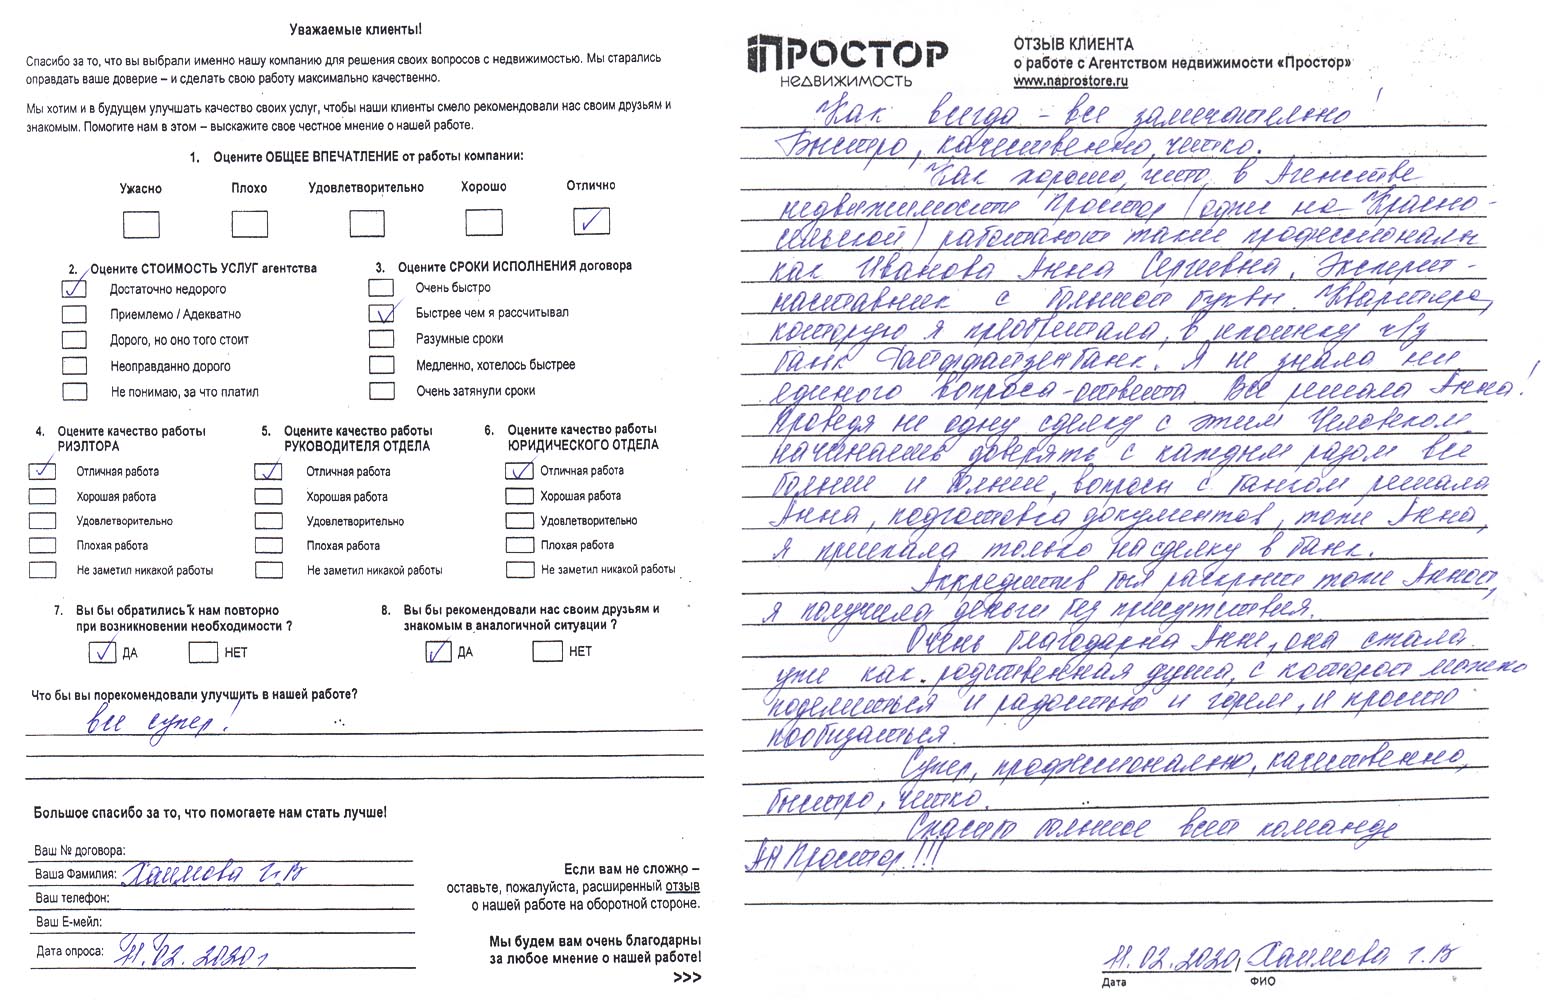 Уважаемые клиенты!
Спасибо за то, что вы выбрали именно нашу компанию для решения своих вопросов с недвижимостью. Мы старались
оправдать ваше доверие – и сделать свою работу максимально качественно.
Мы хотим и в будущем улучшать качество своих услуг, чтобы наши клиенты смело рекомендовали нас своим друзьям и
знакомым. Помогите нам в этом – выскажите свое честное мнение о нашей работе.
1. Оцените ОБЩЕЕ ВПЕЧАТЛЕНИЕ от работы компании:
Ужасно Плохо Удовлетворительно Хорошо Отлично
2. Оцените СТОИМОСТЬ УСЛУГ агентства
Достаточно недорого
Приемлемо / Адекватно
Дорого, но оно того стоит
Неоправданно дорого
Не понимаю, за что платил
3. Оцените СРОКИ ИСПОЛНЕНИЯ договора
Очень быстро
Быстрее чем я рассчитывал
Разумные сроки
Медленно, хотелось быстрее
Очень затянули сроки
4. Оцените качество работы
РИЭЛТОРА
Отличная работа
Хорошая работа
Удовлетворительно
Плохая работа
Не заметил никакой работы
5. Оцените качество работы
РУКОВОДИТЕЛЯ ОТДЕЛА
Отличная работа
Хорошая работа
Удовлетворительно
Плохая работа
Не заметил никакой работы
6. Оцените качество работы
ЮРИДИЧЕСКОГО ОТДЕЛА
Отличная работа
Хорошая работа
Удовлетворительно
Плохая работа
Не заметил никакой работы
7. Вы бы обратились к нам повторно
при возникновении необходимости ?
ДА НЕТ
8. Вы бы рекомендовали нас своим друзьям и
знакомым в аналогичной ситуации ?
ДА НЕТ
Что бы вы порекомендовали улучшить в нашей работе?
все супер!
Большое спасибо за то, что помогаете нам стать лучше!
Ваш № договора:
Ваша Фамилия: Хаимова Г.В
Ваш телефон:
Ваш E-мейл:
Дата опроса: 11.02.2020г
Если вам не сложно –
оставьте, пожалуйста, расширенный отзыв
о нашей работе на оборотной стороне.
Мы будем вам очень благодарны
за любое мнение о нашей работе!
>>>
ПРОСТОР
НЕДВИЖИМОСТЬ
ОТЗЫВ КЛИЕНТА
о работе с Агентством недвижимости «Простор»
www.naprostore.ru
Как всегда – все замечательно!
Быстро, качественно, четко.
Как хорошо, что в Агенстве
недвижимости Простор (одни на Красно-
сельской) работают такие профессионалы
как Иванова Анна Сергеевна. Эксперт-
наставник с большой буквы. Квартира,
которую я преобретала, в ипотеку ч/з
банк Райффайзенбанк. Я не знала ни
единого вопроса-ответа. Все решала Анна!
Проведя не одну сделку с этим Человеком
начинаешь доверять с каждым разом все
больше и больше, вопросы с банком решала
Анна, подготовка документов, тоже Анна,
я приехала только на сделку в банк.
Аккредитив был раскрыт тоже Анной,
я получила деньги без присутствия.
Очень благодарна Анне, она стала
уже как родственная душа, с которой можно
поделиться и радостью и горем, и просто
пообщаться.
Супер, профессионально, качественно,
быстро, четко.
Спасибо большое всей команде
АН Простор!!!
11.02.2020, Хаимова Г.В
Дата ФИО